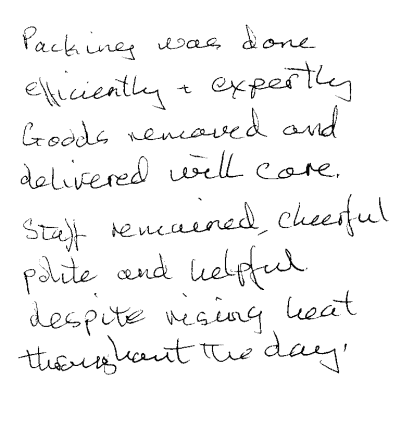 Packing was done
efficiently + expertly
Goods removed and
delivered with care.
Staff remained, cheerful
polite and helpful
despite rising heat
throughout the day.